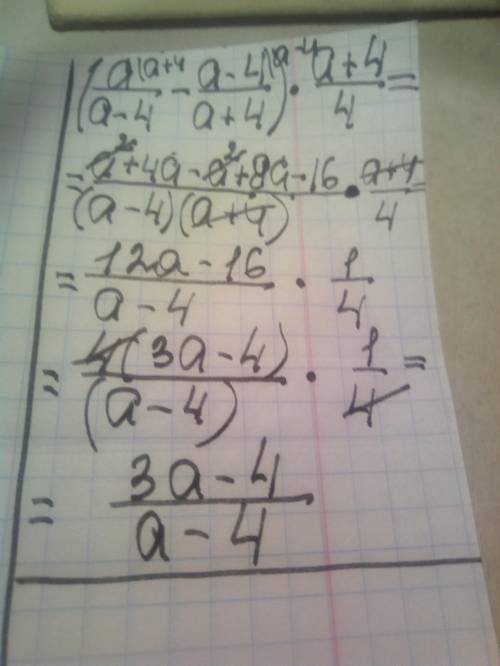 (a|a+4/a-4 - a-4|a-4/a+4) · a+4/4 =
= a²+4a-a²+8a-16/(a-4)(a+4) · a+4/4 =
= 12a-16/a-4 · 1/4
= 4(3a-4)/(a-4) · 1/4 =
= 3a-4/a-4